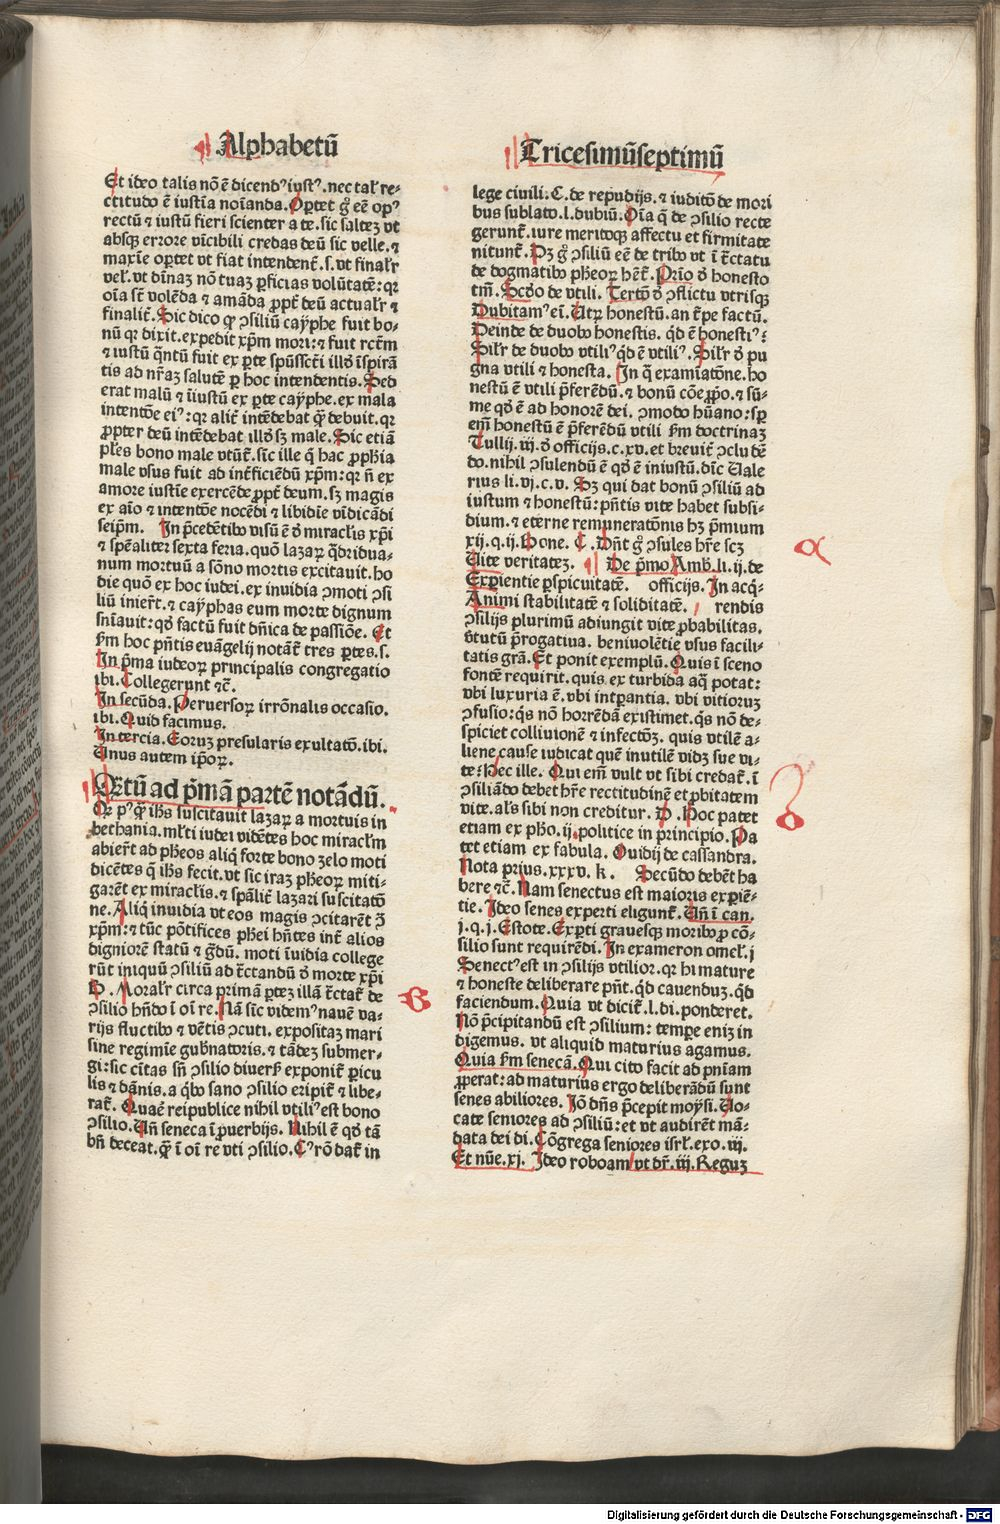 Alphabetū
Et ideo talis nō ē dicendꝰ iustꝰ. nec tal̄r re-
ctitudo ē iustīa noīanda. Oportet gͦ eē opꝰ
rectū ⁊ iustū fieri scienter a te. sic saltez vt
absqꝫ errore vīcibili credas deū sic velle. ⁊
maxīe oportet vt fiat intendent̄. s. vt final̄r
vel̄. vt dīnaꝫ nō tuaꝫ ꝑficias volūtatē: qꝛ
oīa st̄ volēda ⁊ amāda ꝓpt̄ deū actual̄r ⁊
finalit̄. Sic dico ꝙ ꝯsiliū cayphe fuit bo-
nū qꝛ dixit. expedit xp̄m mori: ⁊ fuit rct̄m
⁊ iustū q̄ntū fuit ex ꝑte spūssct̄i illð īspirā
tis ad nr̄aꝫ salutē ꝑ hoc intendentis. Sed
erat malū ⁊ iīustū ex ꝑte cayphe. ex mala
intentōe eiꝰ: qꝛ alit̄ intēdebat q̄ꝫ debuit. qꝛ
ꝓpter deū intēdebat illð sꝫ male. Sic etiā
pl̄es bono male vtūt̄. sic ille q̄ hac ꝓphīa
male vsus fuit ad int̄ficiēdū xp̄m: qꝛ n̄ ex
amore iustīe exercēde ꝓpt̄ deum. sꝫ magis
ex aīo ⁊ intentōe nocēdi ⁊ libidīe vīdicādi
seip̄m. In p̄cedētibꝰ visū ē ð miracl̄is xp̄i
⁊ sp̄ealiter sexta feria. quō lazaꝝ q̄dridua-
num mortuū a sōno mortis excitauit. ho
die quō ex hoc iudei. ex inuidia ꝯmoti ꝯsi
liū inier̄t. ⁊ cayphas eum morte dignum
sn̄iauit: qð factū fuit dn̄ica de passiōe. Et
s̄m hoc pn̄tis euāgelij notāt̄ tres ꝑtes. s.
In p̄ma iudeoꝝ principalis congregatio
ibi. Collegerunt ⁊c̄.
In secūda. Peruersoꝝ irrōnalis occasio.
ibi. Quid facimus.
In tercia. Coruꝫ presularis exultatō. ibi.
Unus autem ip̄oꝝ.
Q̄ztū ad p̄mā partē notādū.
Qꝛ pꝰ ꝙ ihs suscitauit lazaꝝ a mortuis in
bethania. ml̄ti iudei vidētes hoc miracl̄m
abier̄t ad ph̄eos aliq̄ forte bono zelo moti
dicētes q̄ ihs fecit. vt sic iraꝫ ph̄eoꝝ miti-
garēt ex miracl̄is. ⁊ sp̄alit̄ lazari suscitatō
ne. Aliq̄ inuidia vt eos magis ꝯcitarēt ꝯ̄
xp̄m: ⁊ tūc pōtifices ph̄ei hn̄tes int̄ alios
digniorē statū ⁊ ḡdū. moti īuidia college
rūt iniquū ꝯsiliū ad t̄ctandū ð morte xp̄i
B. Moral̄r circa primā ꝑteꝫ illā t̄ctat̄ de
ꝯsilio hn̄do ī oī re. Nā sic videmꝰ nauē va-
rijs fluctibꝰ ⁊ vētis ꝯcuti. expositaꝫ mari
sine regimīe gub̄natoris. ⁊ tādeꝫ submer-
gi: sic cītas sn̄ ꝯsilio diuers̄ exponit̄ ꝑicu
lis ⁊ dānis. a q̄bꝰ sano ꝯsilio eripit̄ ⁊ libe-
rat̄. Quaē reipublice nihil vtiliꝰ est bono
ꝯsilio. Un̄ seneca ī ꝓuerbijs. Nihil ē qð tā
bn̄ deceat. q̄ꝫ ī oī re vti ꝯsilio. Cꝰ rō dat̄ in
Tricesimūseptimū
lege ciuili. C. de repudijs. ⁊ iuditō de mori
bus sublato. l. dubiū. Oīa q̄ de ꝯsilio recte
gerunt̄. iure meritoqꝫ affectu et firmitate
nitunt̄. Pꝫ gͦ ꝯsiliū eē de tribꝰ vt ī t̄ctatu
de dogmatibꝰ ph̄eoꝝ hēt̄. Prīo ð honesto
tm̄. Scd̄o de vtili. Tertō ð ꝯflictu vtriꝯsqꝫ
Dubitamꝰ eī. Utꝝ honestū. an t̄pe factū.
Deinde de duobꝰ honestis. qd̄ ē honestiꝰ:
Sil̄r de duobꝰ vtiliꝰ qd̄ ē vtiliꝰ. Sil̄r ð pu
gna vtili ⁊ honesta. In q̄ examīatōne. ho
nestū ē vtili p̄ferēdū. ⁊ bonū cōe ꝓpo. ⁊ sū-
me qð ē ad honorē dei. ꝯmodo hūano: sꝑ
em̄ honestū ē p̄ferēdū vtili s̄m doctrinaꝫ
Tullij. iij. ð officijs. c. xv. et breuit̄ ꝯcludē
do. nihil ꝯsulendū ē qð ē iniustū. dīc Uale
rius li. vj. c. v. Sꝫ qui dat bonū ꝯsiliū ad
iustum ⁊ honestū: pn̄tis vite habet subsi-
dium. ⁊ eterne remuneratōnis hꝫ p̄mium
xij. q. ij. Bone. C. Dn̄t gͦ ꝯsules hr̄e scꝫ
Uite veritateꝫ. De p̄mo Amb̄. li. ij. de
Experientie ꝑspicuitatē. officijs. In acq̄-
Animi stabilitatē ⁊ soliditatē. rendis
ꝯsilijs plurimū adiungit vite ꝓbabilitas.
v̄tutū p̄rogatiua. beniuolētie vsus facili-
tatis grā. Et ponit exemplū. Quis ī sceno
fontē requirit. quis ex turbida aq̄ potat:
vbi luxuria ē. vbi intꝑantia. vbi vitioruꝫ
ꝯfusio: q̄s nō horrēdā existimet. q̄s nō de-
spiciet colliuionē ⁊ infectōꝫ. quis vtilē a-
liene cause iudicat quē inutilē vidꝫ sue vi-
te: Hec ille. Qui em̄ vult vt sibi credat̄. ī
ꝯsiliādo debet hr̄e rectitudinē et ꝓbitatem
vite. al̄s sibi non creditur. D. Hoc patet
etiam ex ph̄o. ij. politice in principio. Pa
tet etiam ex fabula. Ouidij de cassandra.
Nota prius. xxxv. k. Secūdo debēt ha
bere ⁊c̄. Nam senectus est maioris expiē-
tie. Ideo senes experti eligunt̄. Un̄ ī can.
j. q. j. Estote. Exꝑti grauesqꝫ moribꝰ ꝓ cō-
silio sunt requirēdi. In exameron omel̄. j
Senectꝰ est in ꝯsilijs vtilior. qꝛ hi mature
⁊ honeste deliberare pn̄t. qd̄ cauenduꝫ. qd̄
faciendum. Quia vt dicit̄. l. di. ponderet.
Nō p̄cipitandū est ꝯsilium: tempe enīꝫ in
digemus. vt aliquid maturius agamus.
Quia s̄m senecā. Qui cito facit ad pn̄iam
ꝓperat: ad maturius ergo deliberādū sunt
senes abiliores. Iō dn̄s p̄cepit moysi. Uo-
cate seniores ad ꝯsiliū: et vt audirēt mā-
data dei di. Cōgrega seniores isrl̄. exo. iij.
Et nūe. xj. Ideo roboam vt dr̄. iij. Reguꝫ
a
B
Digitalisierung gefördert durch die Deutsche Forschungsgemeinschaft - DFG